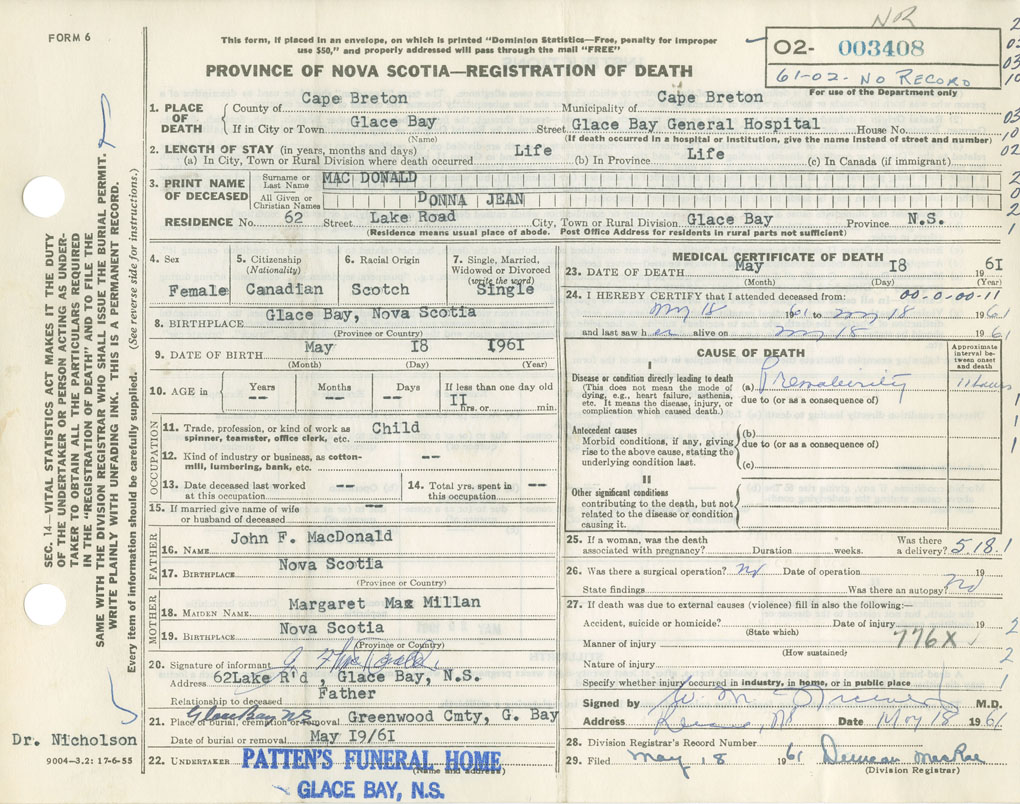 NR
FORM 6
This form, if placed in an envelope, on which is printed "Dominion Statistics—Free, penalty for improper
use $50," and properly addressed will pass through the mail "FREE"
O2- 003408
61-02- No Record
For use of the Department only
PROVINCE OF NOVA SCOTIA—REGISTRATION OF DEATH
1. PLACE OF DEATH { County of Cape Breton Municipality of Cape Breton
If in City or Town Glace Bay Street Glace Bay General Hospital House No.
(Name) (If death occurred in a hospital or institution, give the name instead of street and number)
2. LENGTH OF STAY (in years, months and days)
(a) In City, Town or Rural Division where death occurred Life (b) In Province Life (c) In Canada (if immigrant)
3. PRINT NAME OF DECEASED Surname or Last Name MAC DONALD
All Given or Christian Names DONNA JEAN
RESIDENCE No. 62 Street Lake Road City, Town or Rural Division Glace Bay Province N.S.
(Residence means usual place of abode. Post Office Address for residents in rural parts not sufficient)
4. Sex Female
5. Citizenship (Nationality) Canadian
6. Racial Origin Scotch
7. Single, Married, Widowed or Divorced (write the word) Single
8. BIRTHPLACE Glace Bay, Nova Scotia
(Province or Country)
9. DATE OF BIRTH May I8 I96I
(Month) (Day) (Year)
10. AGE in Years -- Months -- Days -- If less than one day old II hrs. or min.
OCCUPATION
11. Trade, profession, or kind of work as spinner, teamster, office clerk, etc. Child
12. Kind of industry or business, as cotton-mill, lumbering, bank, etc. --
13. Date deceased last worked at this occupation --
14. Total yrs. spent in this occupation --
15. If married give name of wife or husband of deceased --
FATHER
16. NAME John F. MacDonald
17. BIRTHPLACE Nova Scotia
(Province or Country)
MOTHER
18. MAIDEN NAME Margaret Max Millan
19. BIRTHPLACE Nova Scotia
(Province or Country)
20. Signature of informant
Address 62Lake R'd , Glace Bay, N.S.
Relationship to deceased Father
Glace Bay NS
21. Place of burial, cremation or removal Greenwood Cmty, G. Bay
Date of burial or removal May I9/6I
22. UNDERTAKER PATTEN'S FUNERAL HOME
(Name and address)
GLACE BAY, N.S.
MEDICAL CERTIFICATE OF DEATH
23. DATE OF DEATH May I8 1961
(Month) (Day) (Year)
24. I HEREBY CERTIFY that I attended deceased from: 00-0-00-11
May 18 1961 to May 18 1961
and last saw her alive on May 18 1961
CAUSE OF DEATH
Approximate interval between onset and death
I
Disease or condition directly leading to death
(This does not mean the mode of dying, e.g., heart failure, asthenia, etc. It means the disease, injury, or complication which caused death.)
(a) Prematurity 11 hours
due to (or as a consequence of)
Antecedent causes
Morbid conditions, if any, giving rise to the above cause, stating the underlying condition last.
(b)
due to (or as a consequence of)
(c)
II
Other significant conditions
contributing to the death, but not related to the disease or condition causing it.
25. If a woman, was the death associated with pregnancy? Duration weeks. Was there a delivery? 5.18.1
26. Was there a surgical operation? No Date of operation 19
State findings Was there an autopsy? No
27. If death was due to external causes (violence) fill in also the following:—
Accident, suicide or homicide? Date of injury 19
(State which)
Manner of injury 776X
(How sustained)
Nature of injury
Specify whether injury occurred in industry, in home, or in public place
Signed by M.D.
Address Date May 18 1961
28. Division Registrar's Record Number
29. Filed May 18 1961 Duncan MacRae
(Division Registrar)
SEC. 14—VITAL STATISTICS ACT MAKES IT THE DUTY
OF THE UNDERTAKER OR PERSON ACTING AS UNDER-
TAKER TO OBTAIN ALL THE PARTICULARS REQUIRED
IN THE "REGISTRATION OF DEATH" AND TO FILE THE
SAME WITH THE DIVISION REGISTRAR WHO SHALL ISSUE THE BURIAL PERMIT.
WRITE PLAINLY WITH UNFADING INK. THIS IS A PERMANENT RECORD.
Every item of information should be carefully supplied. (See reverse side for instructions.)
Dr. Nicholson
9004-3.2: 17-6-55